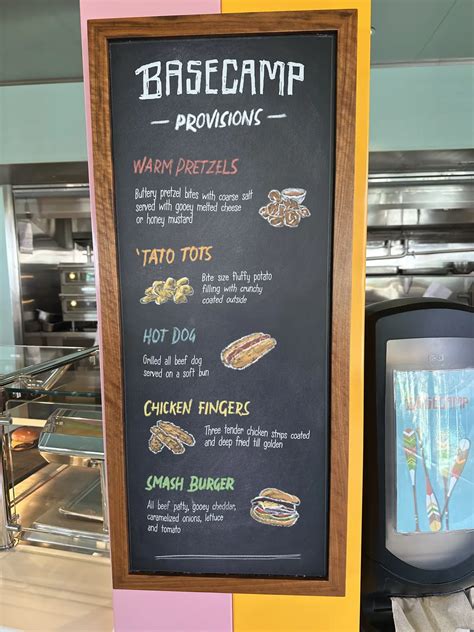 BASECAMP
— PROVISIONS —
WARM PRETZELS
Buttery pretzel bites with coarse salt
served with gooey melted cheese
or honey mustard
'TATO TOTS
Bite size fluffy potato
filling with crunchy
coated outside
HOT DOG
Grilled all beef dog
served on a soft bun
CHICKEN FINGERS
Three tender chicken strips coated
and deep fried till golden
SMASH BURGER
All beef patty, gooey cheddar,
caramelized onions, lettuce
and tomato
BASECAMP